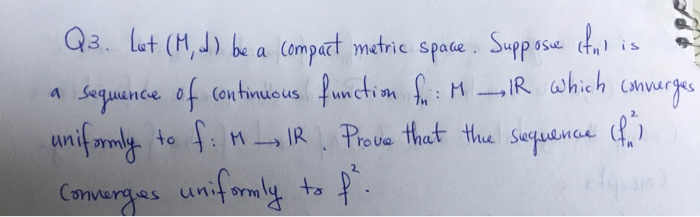 Q3. Let (M, d) be a compact metric space. Suppose (fₙ) is
a sequence of continuous function fₙ : M → IR which converges
uniformly to f : M → IR. Prove that the sequence (fₙ²)
Converges uniformly to f².